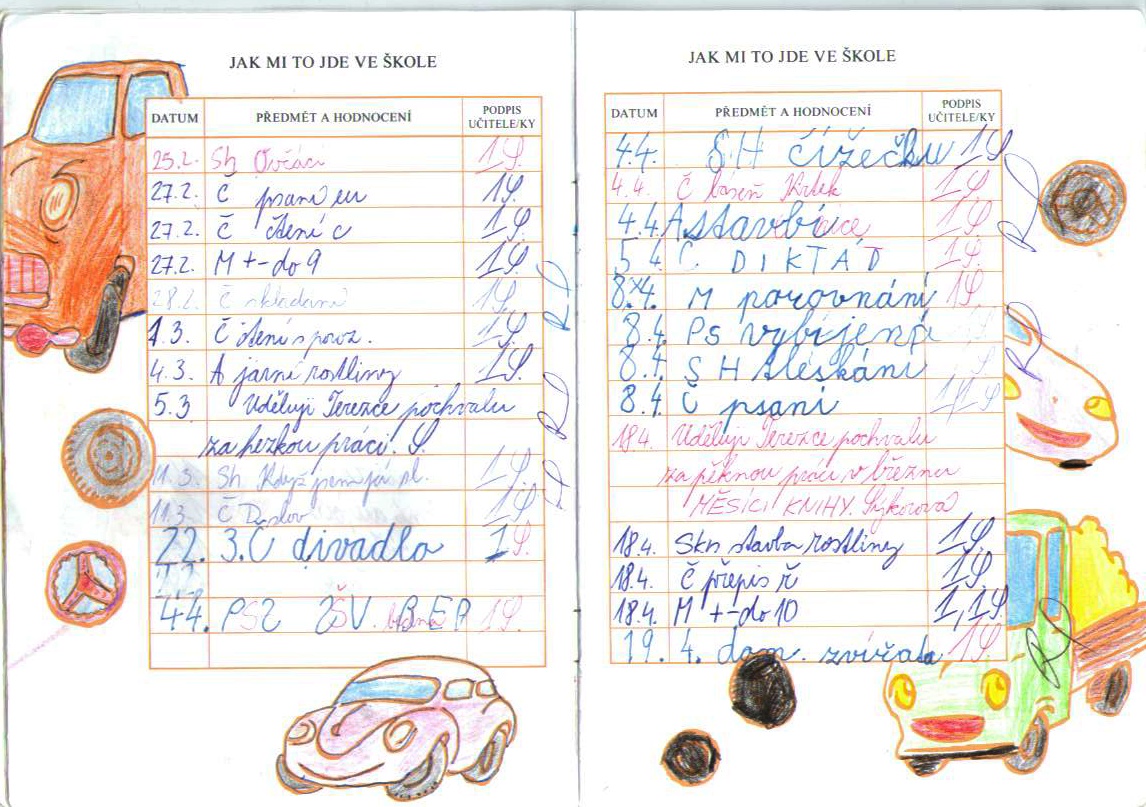 JAK MI TO JDE VE ŠKOLE
DATUM PŘEDMĚT A HODNOCENÍ PODPIS UČITELE/KY
25.2. Sh Ovčáci 1S.
27.2. Č psaní eu 1S.
27.2. Č čtení c 1S.
27.2. M +-do 9 1S.
28.2. Č skládání 1S.
1.3. Č čtení s poroz. 1S.
4.3. A jarní rostliny 1S.
5.3 Uděluji Terezce pochvalu
za hezkou práci. S.
11.3. Sh Když jsem já sl. 1S.
11.3. Č D slov 1S.
22. 3. Č divadlo 1S.
4 4. 1S.
JAK MI TO JDE VE ŠKOLE
DATUM PŘEDMĚT A HODNOCENÍ PODPIS UČITELE/KY
4.4. SH čížečku 1S
4.4. Č báseň Krtek 1S.
4.4. A 1S.
5 4. Č. DIKTÁT 1S.
8.4. M porovnání 1S.
8.4. Ps vybíjená
8.4. S H tleskání S.
8.4. Č psaní 1,1S
18.4. Uděluji Terezce pochvalu
za pěknou práci v březnu
MĚSÍCI KNIHY. Sýkorová
18.4. stavba rostliny 1S.
18.4. Č přepis ř 1S.
18.4. M +-do 10 1,1S.
19. 4. dom. zvířata 1S.